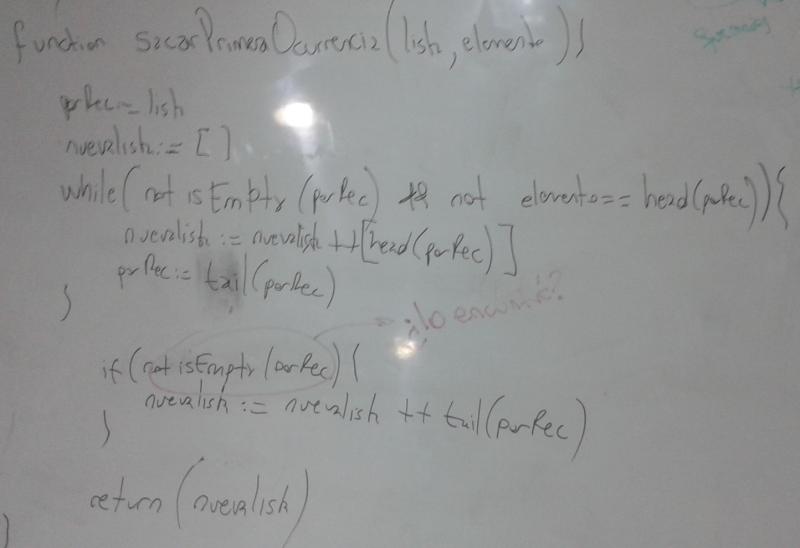 function sacarPrimeraOcurrencia(lista, elemento){
porRec:=lista
nuevalista:= []
while( not isEmpty (porRec) && not elemento== head(porRec)){
nuevalista := nuevalista ++[head(porRec)]
porRec:= tail(porRec)
}
¿lo encontré?
if(not isEmpty(porRec){
nuevalista := nuevalista ++ tail(porRec)
}
return (nuevalista)
}